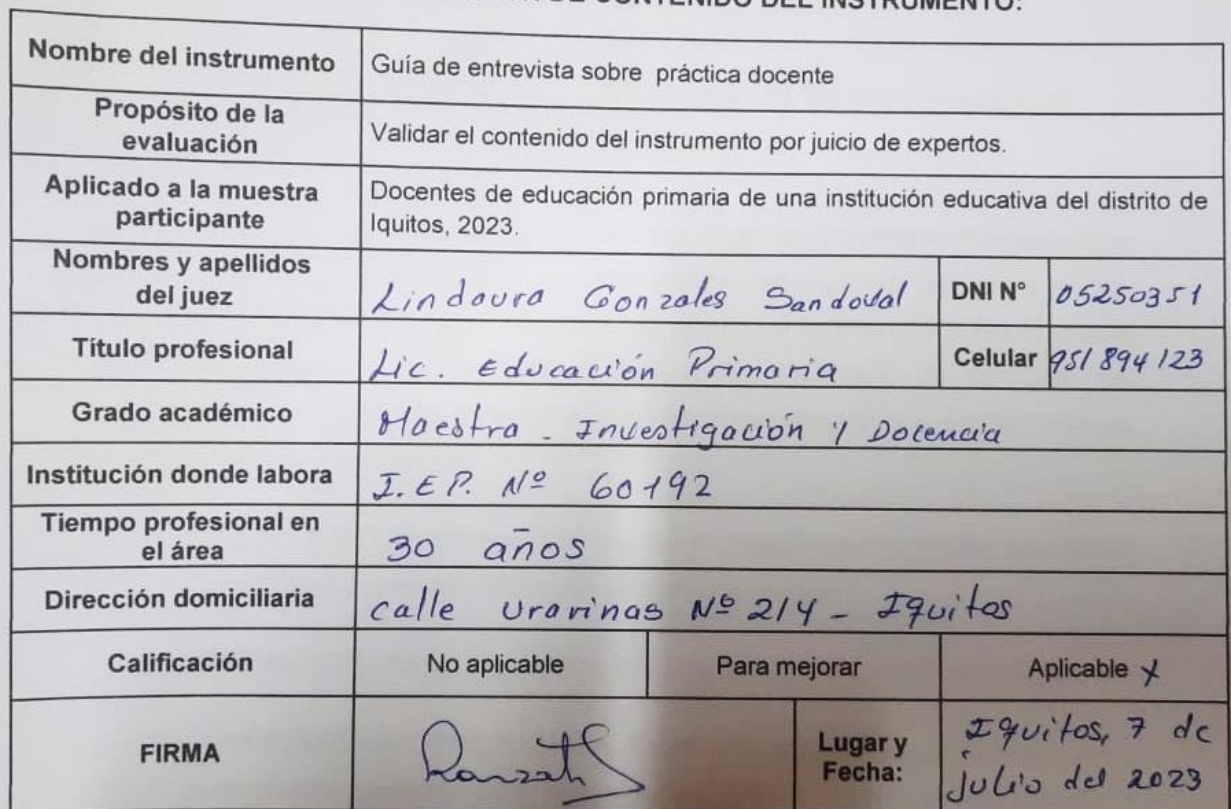 DE CONTENIDO DEL INSTRUMENTO:
Nombre del instrumento Guía de entrevista sobre práctica docente
Propósito de la
evaluación Validar el contenido del instrumento por juicio de expertos.
Aplicado a la muestra
participante Docentes de educación primaria de una institución educativa del distrito de
Iquitos, 2023.
Nombres y apellidos
del juez Lindaura Gonzales Sandoval DNI N° 05250351
Título profesional Lic. Educación Primaria Celular 951 894 123
Grado académico Maestra - Investigación y Docencia
Institución donde labora I.E.P. Nº 60192
Tiempo profesional en
el área 30 años
Dirección domiciliaria calle Urarinas Nº 214 - Iquitos
Calificación No aplicable Para mejorar Aplicable x
FIRMA Lugar y
Fecha: Iquitos, 7 de
julio del 2023